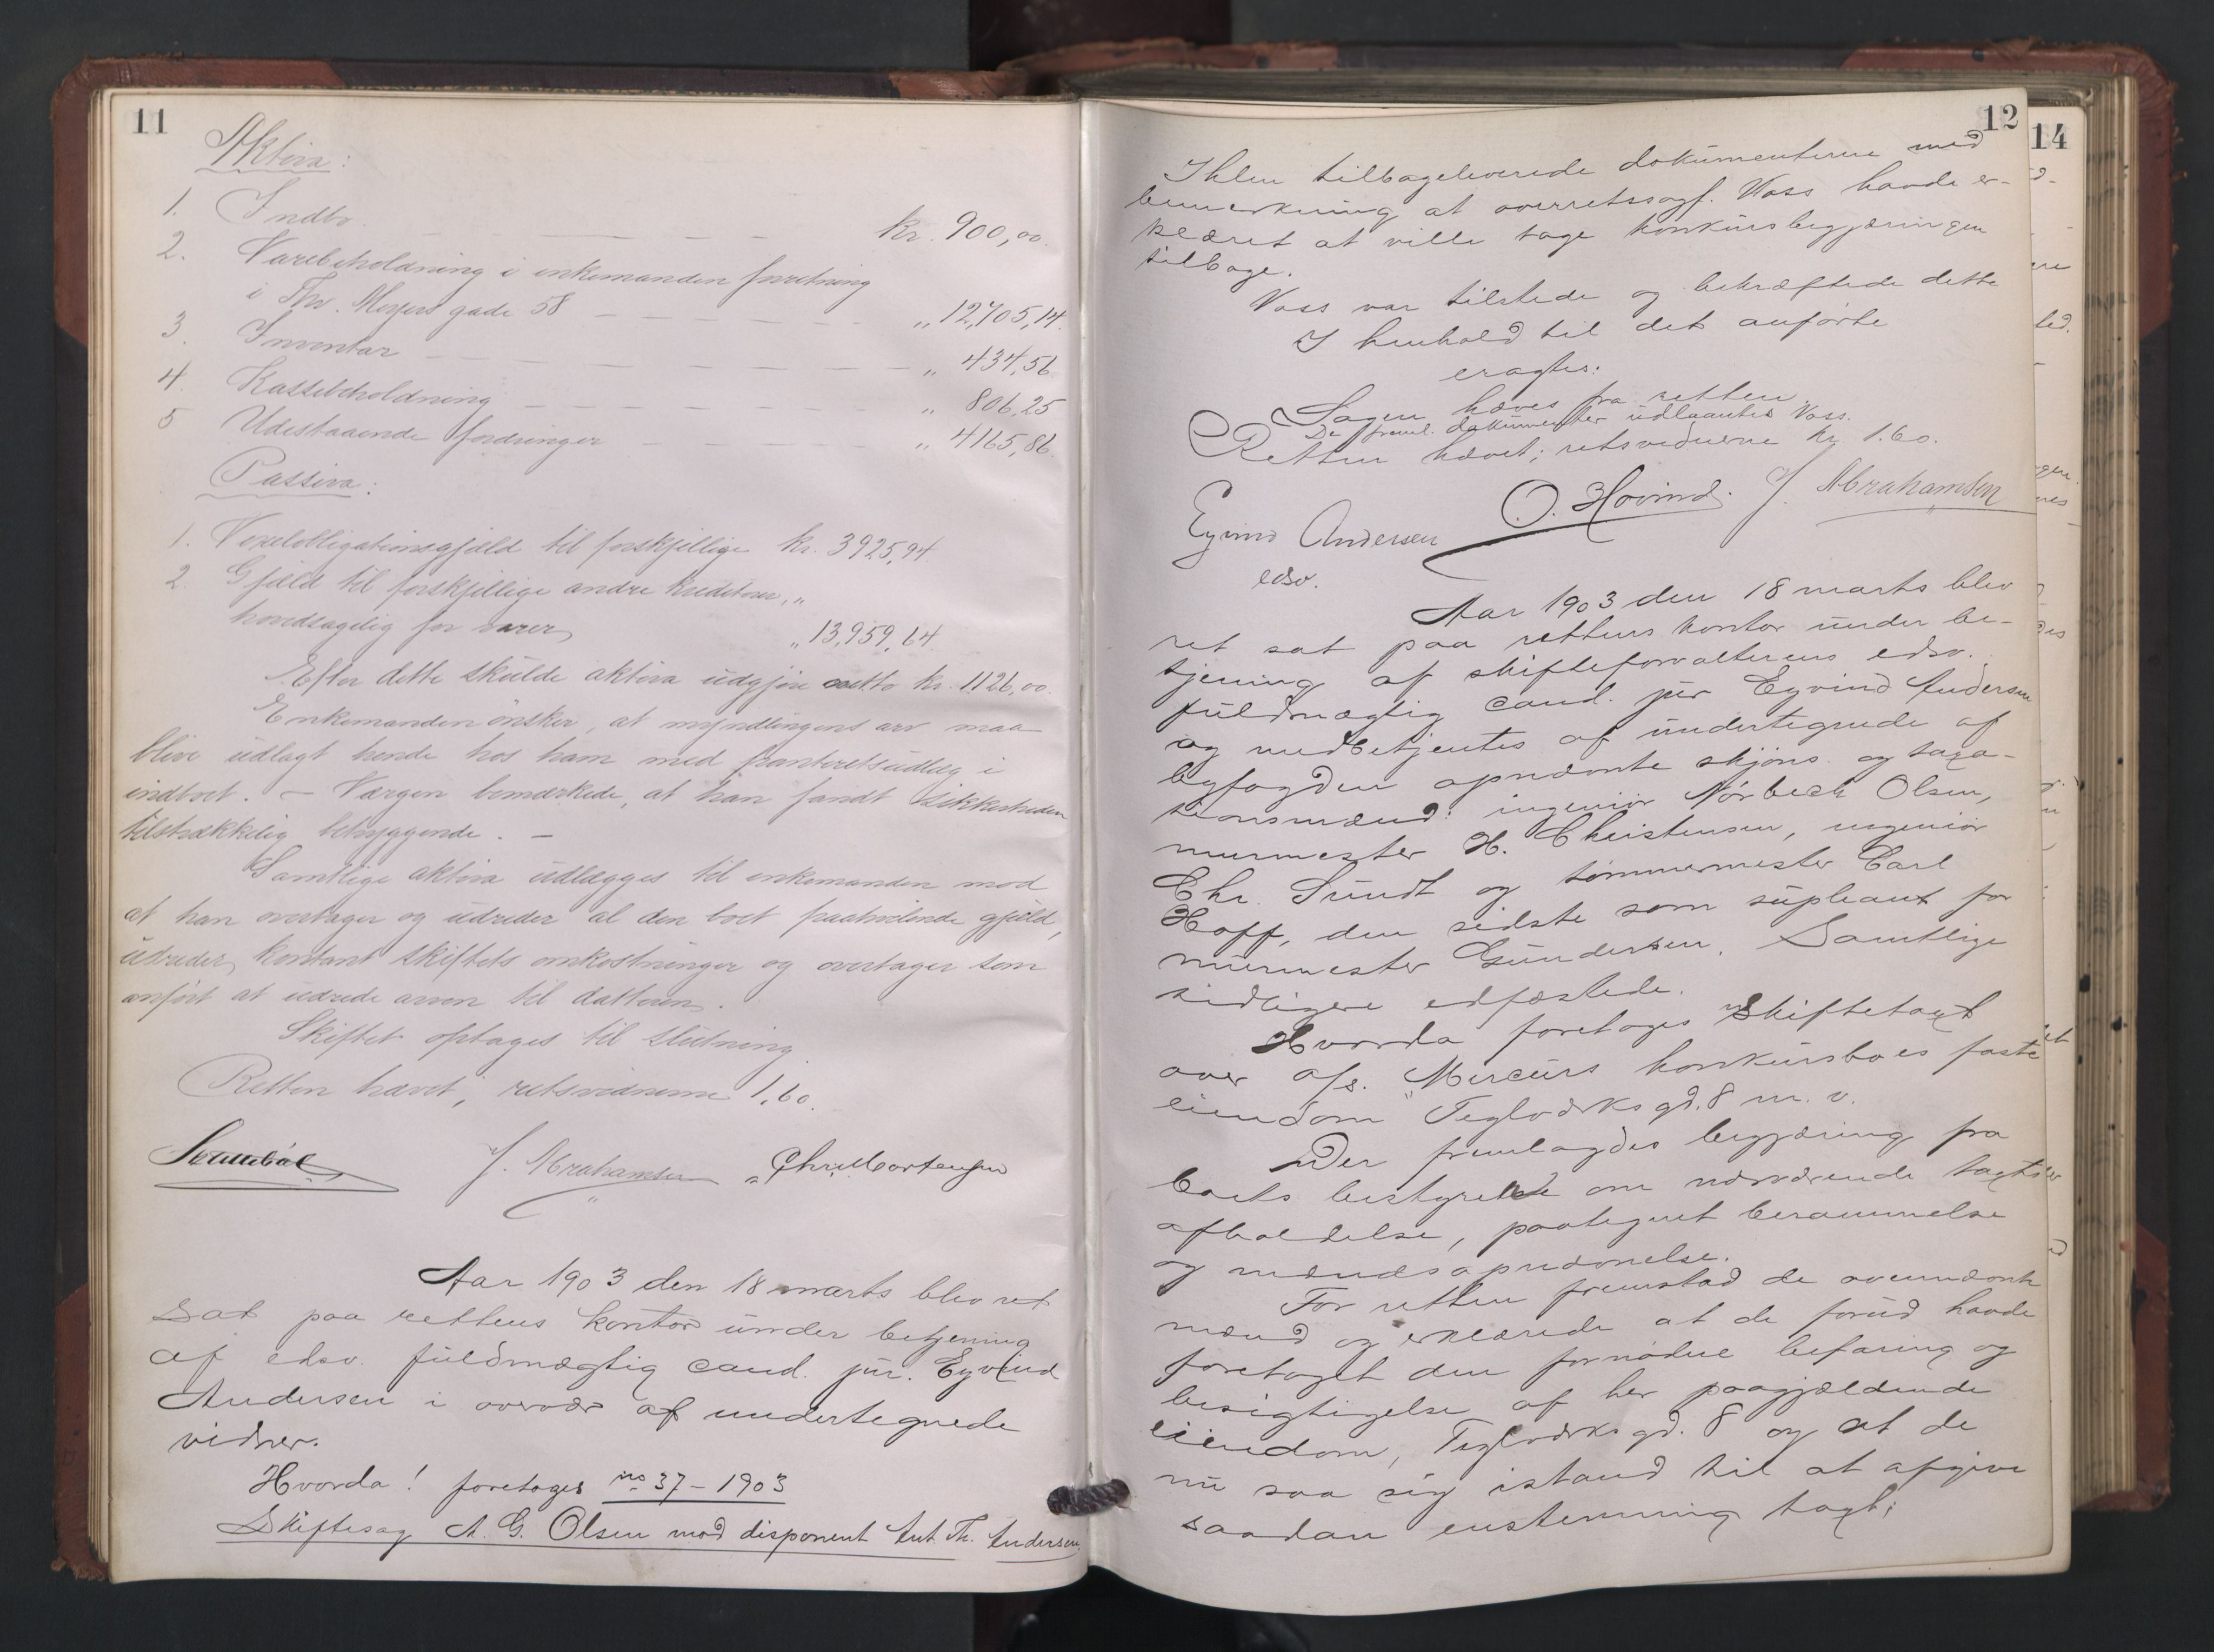 11
Aktiva:
1. Indbo kr. 900,00.
2. Varebeholdning i enkemanden forretning
i Thv. Meyers gade 58 „ 12,705,14.
3. Inventar „ 434,56
4. Kassebeholdning „ 806,25
5 Udestaaende fordringer „ 4165,86.
Passiva:
1. Vexelobligationsgjæld til forskjellige kr. 3925,94
2. Gjæld til forskjellige andre kreditorer, „
hovedsagelig for varer, „ 13,959,64.
Efter dette skulde aktiva udgjøre netto kr. 1126,00.
Enkemanden ønsker, at myndlingens arv maa
blive udlagt hende hos ham med panteretsudlæg i
indboet. – Værgen bemærkede, at han fandt sikkerheden
tilstrækkelig betryggende. –
Samtlige aktiva udlægges til enkemanden mod
at han overtager og udreder al den boet paahvilende gjæld,
udreder kontant skiftets omkostninger og overtager som
anført at udrede arven til datteren.
Skiftet optages til slutning.
Retten hævet; retsvidnerne 1,60.
J. Abrahamsen Chr. Mortensen
Aar 1903 den 18 marts blev ret
sat paa rettens kontor under betjening
af edsv. fuldmægtig cand. jur. Eyvind
Andersen i overvær af undertegnede
vidner.
Hvorda! foretoges no 37 – 1903
Skiftesag A. G. Olsen mod disponent Ant. Th. Andersen.
12
Ihlen tilbageleverede dokumenterne med
bemerkning at overretssagf. Voss havde er-
klæret at ville tage konkursbegjæringen
tilbage.
Voss var tilstede og bekræftede dette
I henhold til det anførte
eragtes:
Sagen hæves fra retten.
De freml. dokumenter udlaantes Voss.
Retten hævet; retsvidnerne kr. 1.60.
Eyvind Andersen O. Hovind. J. Abrahamsen
edsv.
Aar 1903 den 18 marts blev
ret sat paa rettens kontor under be-
tjening af skifteforvalterens edsv.
fuldmægtig cand. jur Eyvind Andersen
og medbetjentes af undertegnede af
byfogden opnævnte skjøns og taxa-
tionsmænd: ingeniør Nørbech Olsen,
murmester H. Christensen, ingeniør
Chr. Sundt og tømmermester Carl
Hoff, den sidste som supleant for
murmester Gundersen. Samtlige
tidligere edfæstede.
Hvorda foretoges Skiftetaxt
over A/s. „Mercurs konkursboes faste
eiendom Teglværksgd. 8 m. v.
Der fremlagdes begjæring fra
boets bestyrelse om nærværende taxts
afholdelse, paategnet berammelse
og mændsopnævnelse.
For retten fremstod de ovennævnte
mænd og erklærede at de forud havde
foretaget den fornødne befaring og
besigtigelse af her paagjældende
eiendom, Teglværksgd. 8 og at de
nu saa sig istand til at afgive
saadan enstemmig taxt;
14